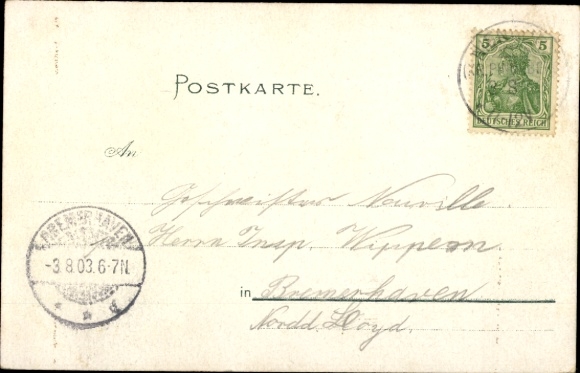 5 5
DEUTSCHES REICH
POSTKARTE.
An
Geschwister Neuville.
Herrn Insp. Wippern
BREMERHAVEN
-3.8.03.6-7N.
* * d
in Bremerhaven
Nordd. Lloyd.